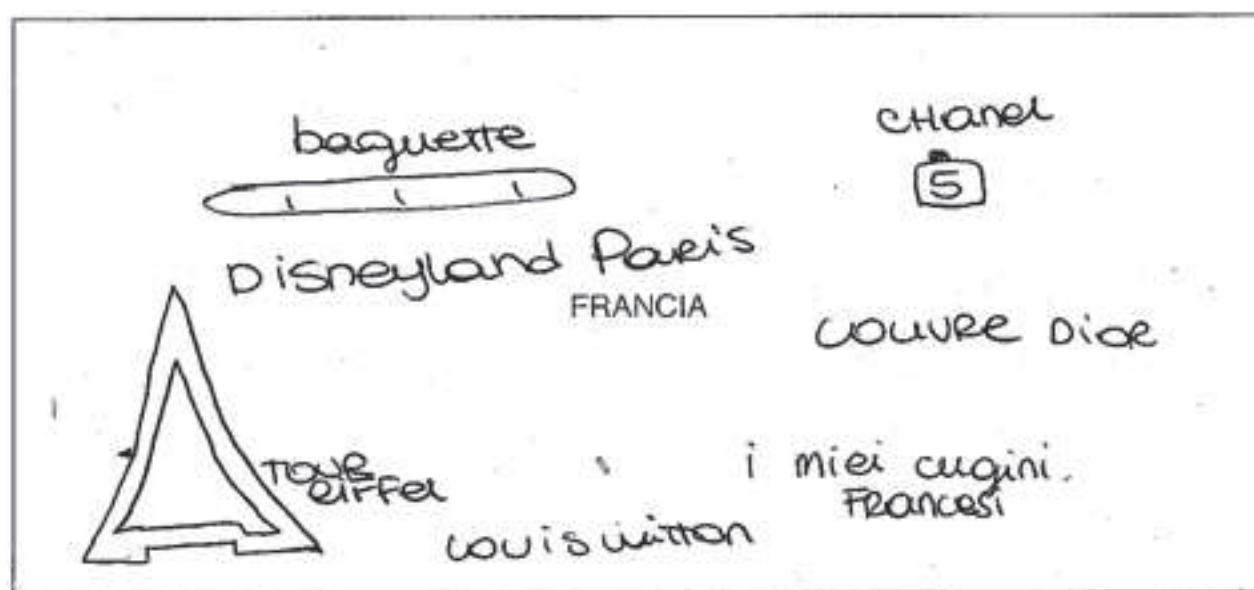 baguette
CHanel
5
Disneyland Paris
FRANCIA
LOUVRE DIOR
TOUR
eiffel
i miei cugini.
FRancesi
Louis Vuitton